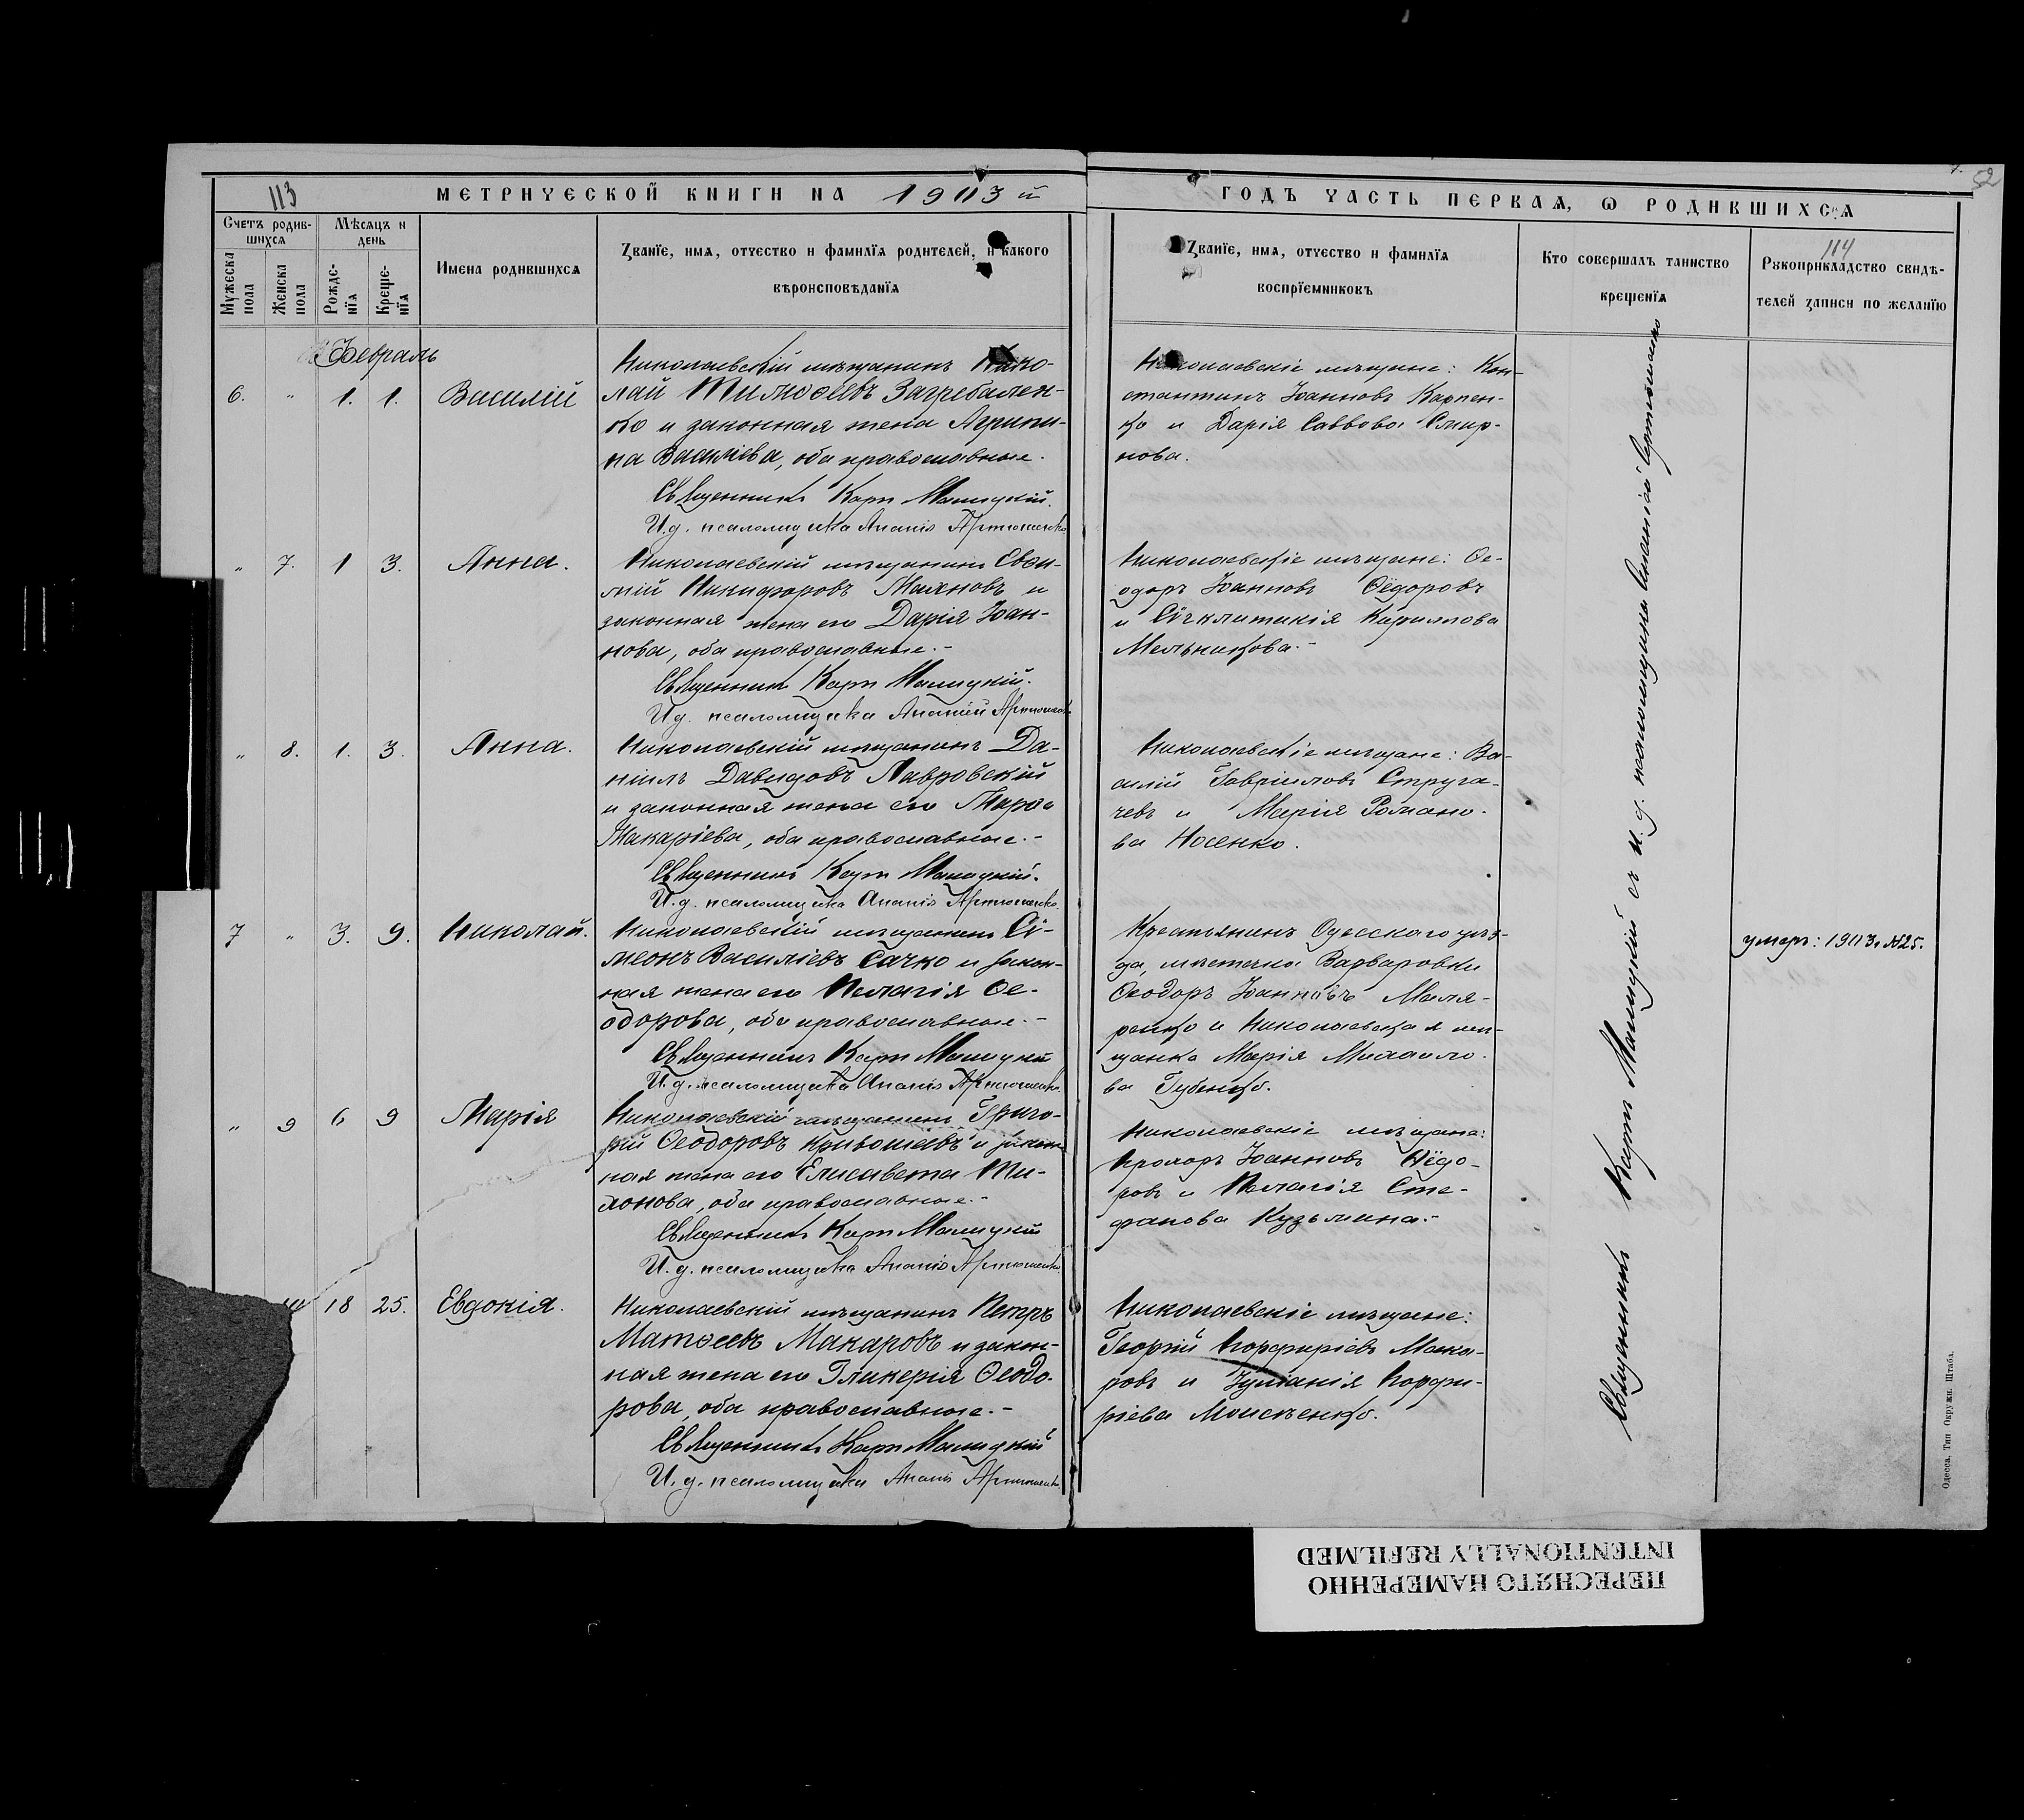 113
МЕТРИЧЕСКОЙ КНИГИ НА 1903 й
ГОДЪ ЧАСТЬ ПЕРВАЯ, Ѡ РОДИВШИХСЯ
52
Счетъ родив-
шихся
Мѣсяцъ и
день
Мужеска
пола
Женска
пола
Рожде-
нїя
Креще-
нїя
Имена родившихся
Званїе, имя, отчество и фамилїя родителей, и какого
вѣроисповѣданїя
Званїе, имя, отчество и фамилїя
воспрїемниковъ
Кто совершалъ таинство
крещенїя
114
Рукоприкладство свидѣ-
телей записи по желанїю
Февраль
6. " 1. 1. Василій
Николаевскій мѣщанинъ Нико-
лай Тимоѳеевъ Загребален-
ко и законная жена Агрипи-
на Василіева, оба православные.
Священникъ Карпъ Малицкій.
И.д. псаломщика Ананій Артюшенко
Николаевскіе мѣщане: Кон-
стантинъ Іоанновъ Карпен-
ко и Дарія Саввова Смир-
нова.
" 7. 1 3. Анна.
Николаевскій мѣщанинъ Евѳи-
мій Никифоровъ Махновъ и
законная жена его Дарія Іоан-
нова, оба православные.-
Священникъ Карпъ Малицкій.
И.д. псаломщика Ананій Артюшенко
Николаевскіе мѣщане: Ѳе-
одоръ Іоанновъ Ѳёдоровъ
и Сѵнклитикія Кириллова
Мельникова.-
" 8. 1. 3. Анна.
Николаевскій мѣщанинъ Да-
ніилъ Давидовъ Лавровскій
и законная жена его
Макаріева, оба православные.-
Священникъ Карпъ Малицкій.
И.д. псаломщика Ананій Артюшенко.
Николаевскіе мѣщане: Ва-
силій Гавріиловъ Струга-
чевъ и Марія Романо-
ва Носенко.
7 " 3. 9. Николай.
Николаевскій мѣщанинъ Сѵ-
меонъ Василіевъ Сачко и закон-
ная жена его Пелагія Ѳе-
одорова, оба православные.-
Священникъ Карпъ Малицкій
И.д. псаломщика Ананій Артюшенко.
Крестьянинъ Одесскаго уѣз-
да, мѣстечка Варваровки
Ѳеодоръ Іоанновъ Маля-
ренко и Николаевская мѣ-
щанка Марія Михаило-
ва Губенко.
умеръ: 1903. №25.
" 9 6 9 Марія
Николаевскій мѣщанинъ Григо-
рій Ѳеодоровъ Кривошеевъ и закон-
ная жена его Елисавета Ти-
хонова, оба православные.-
Священникъ Карпъ Малицкій
И.д. псаломщика Ананій Артюшенко.
Николаевскіе мѣщане:
Прохоръ Іоанновъ
ровъ и Пелагія Сте-
фанова Кузьмина.-
18 25. Евдокія.
Николаевскій мѣщанинъ Петръ
Матѳеевъ Макаровъ и закон-
ная жена его Гликерія Ѳеодо-
рова, оба православные.-
Священникъ Карпъ Малицкій
И.д. псаломщика Ананій Артюшенко
Николаевскіе мѣщане:
Георгій Порфиріевъ Мака-
ровъ и Іуліанія Порфи-
ріева Моисѣенко.
Священникъ Карпъ Малицкій съ и.д. псаломщика Ананіей Артюшенко
Одесса, Тип Окружн. Штаба.
ПЕРЕСНЯТО НАМЕРЕННО
INTENTIONALLY REFILMED